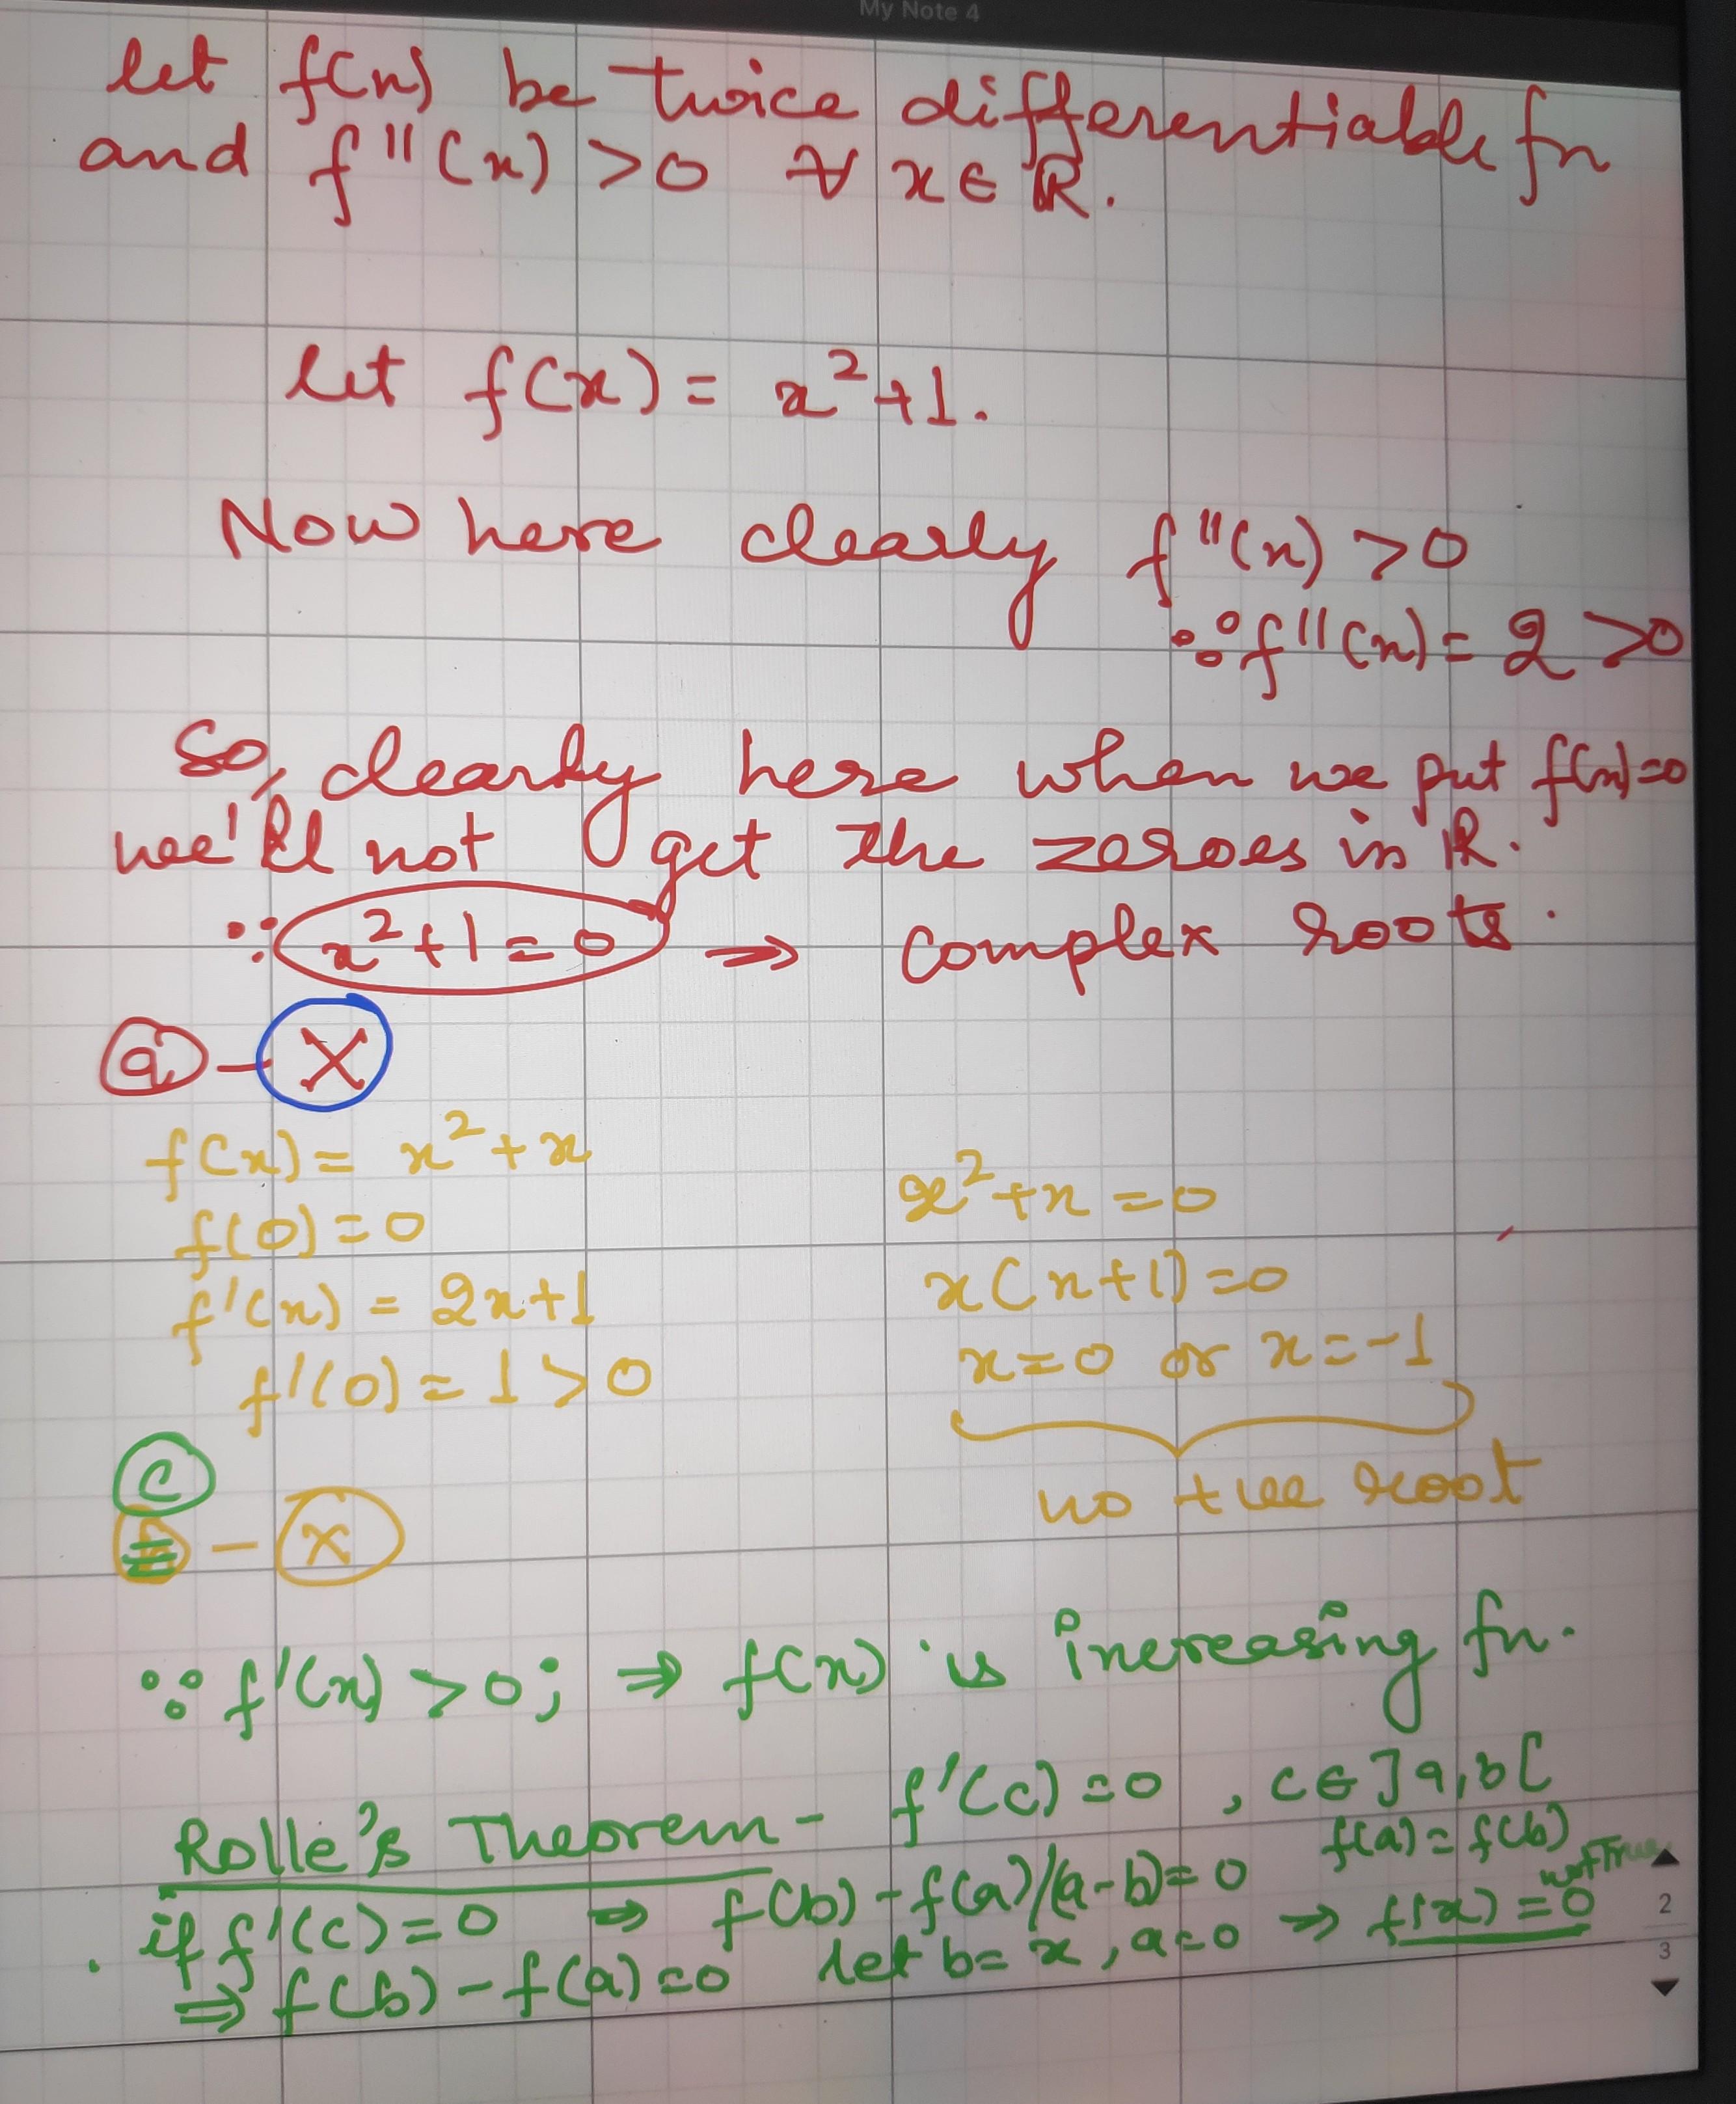 My Note 4
let f(x) be twice differentiable fn
and f''(x) >0 ∀ x∈ R.
let f(x) = x²+1.
Now here clearly f''(x) >0
∵ f''(x) = 2 >0
So, clearly here when we put f(x)=0
we'll not get the zeroes in R.
∵ x²+1=0 ⇒ complex roots.
a - X
f(x) = x²+x
f(0) = 0
f'(x) = 2x+1
f'(0) = 1 > 0
x²+x = 0
x(x+1) = 0
x=0 or x=-1
no +ve root
c
- x
∵ f'(x) >0; ⇒ f(x) is increasing fn.
Rolle's Theorem - f'(c) = 0 , c∈]a,b[
f(a) = f(b)
if f'(c) = 0 ⇒ f(b) - f(a)/(a-b) = 0
not True
⇒ f(b) - f(a) = 0 let b= x, a=0 ⇒ f(x) = 0
2
3